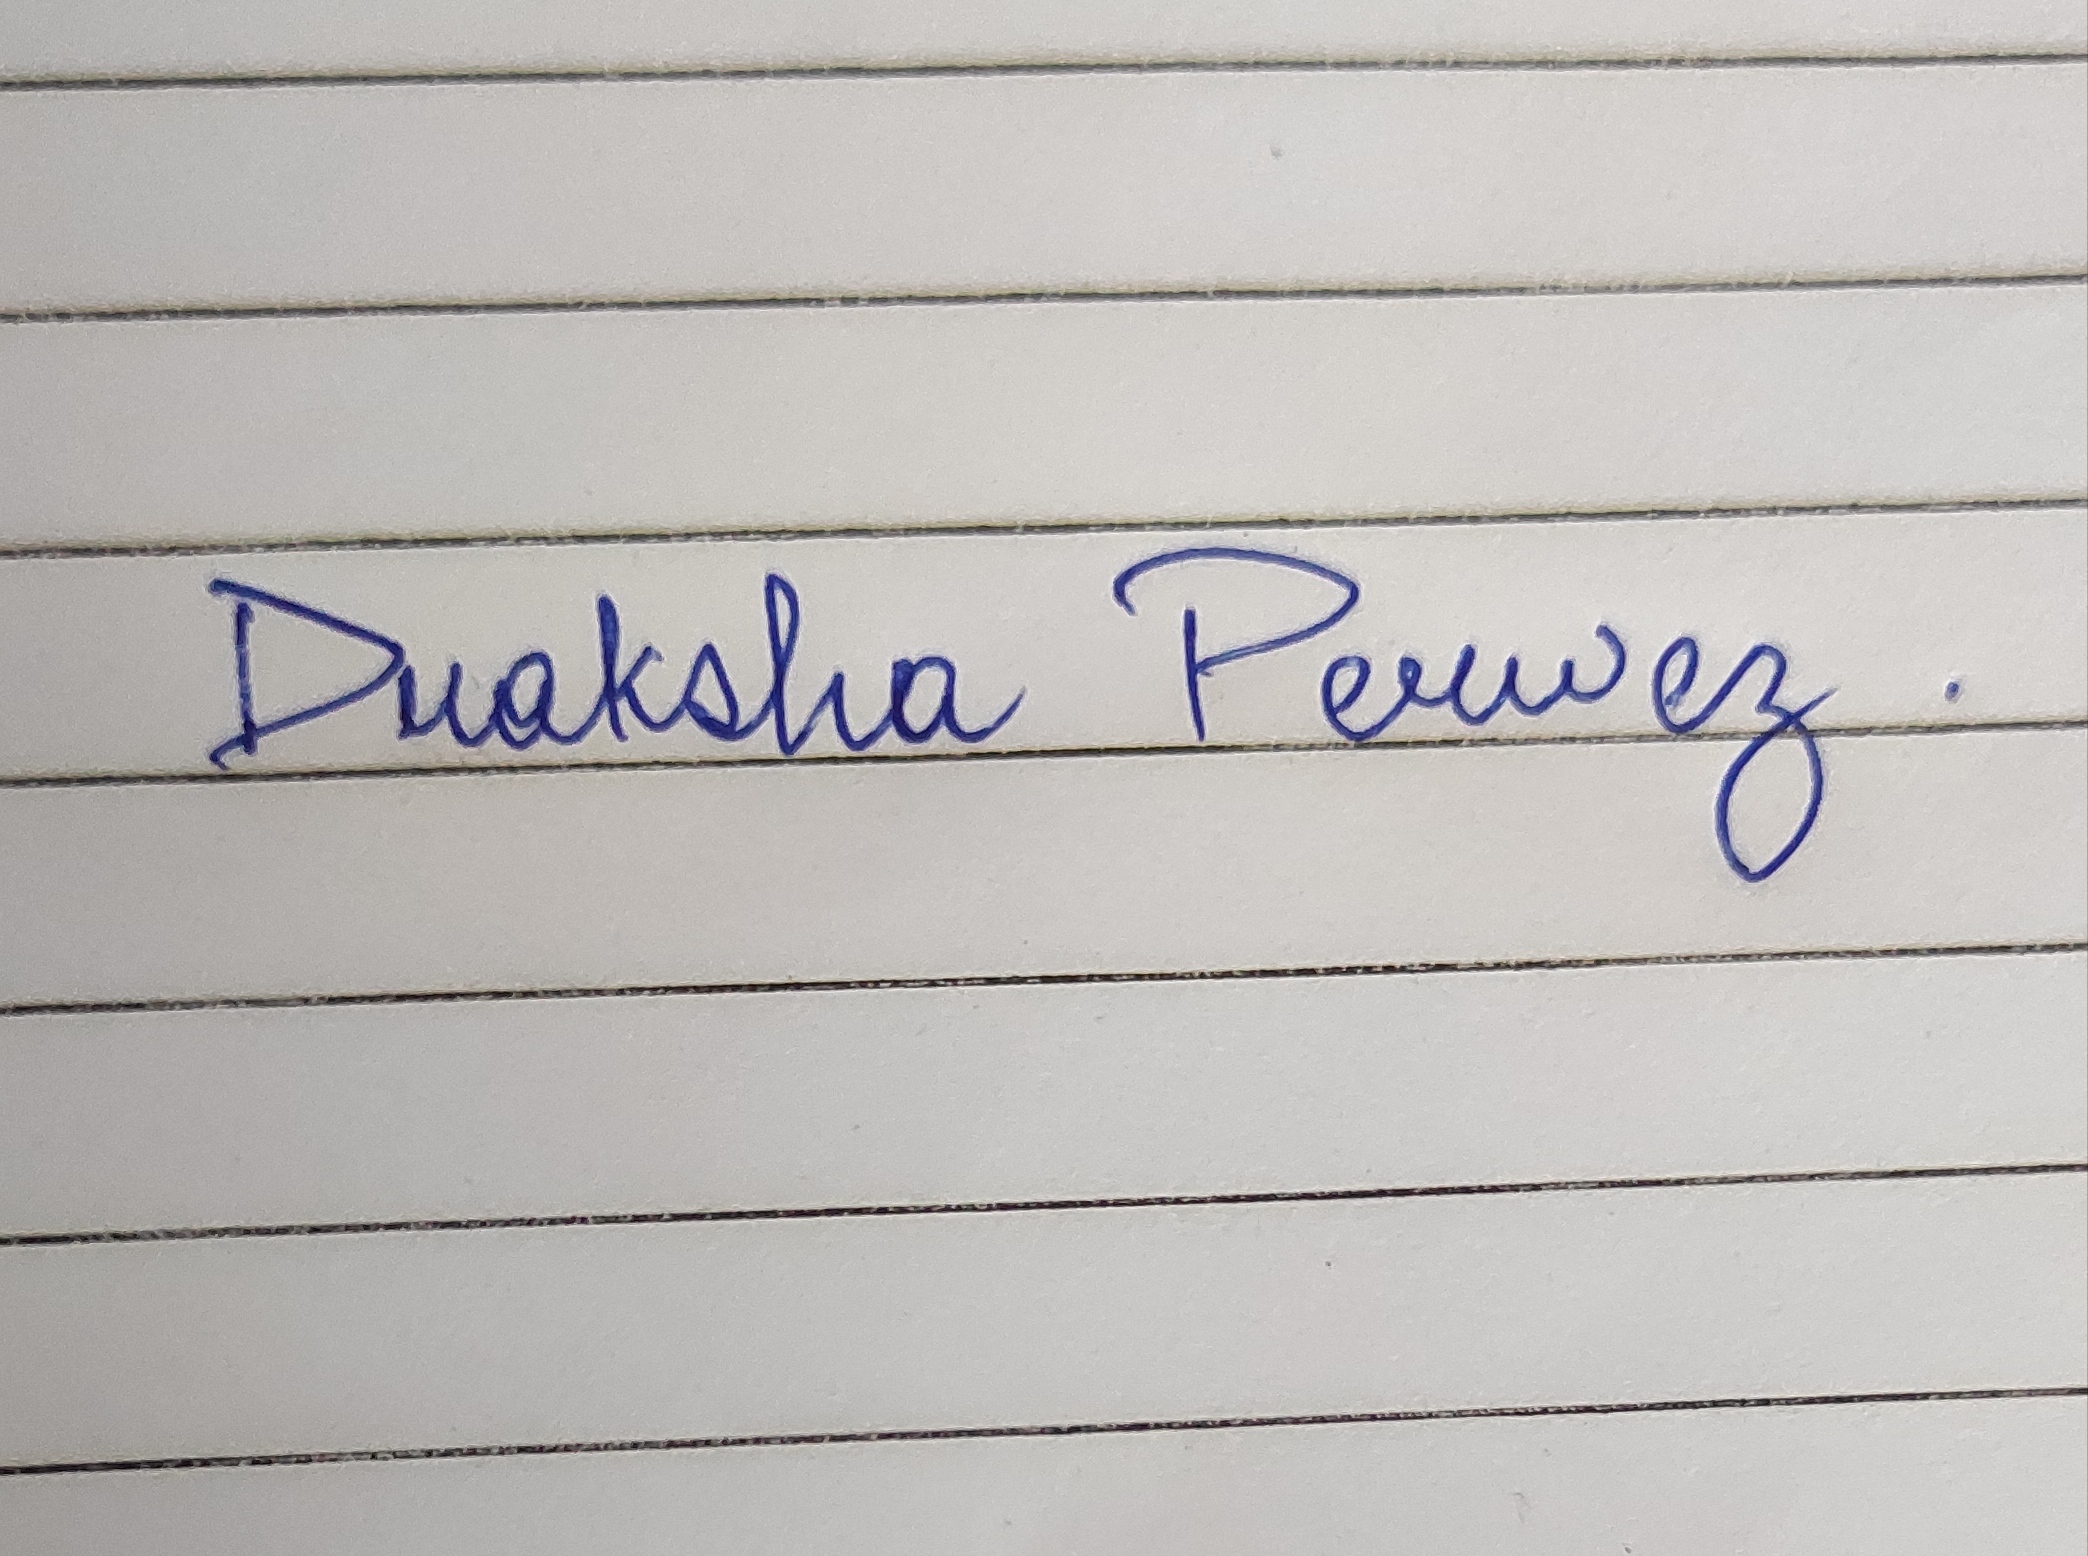 Draksha Perwez.